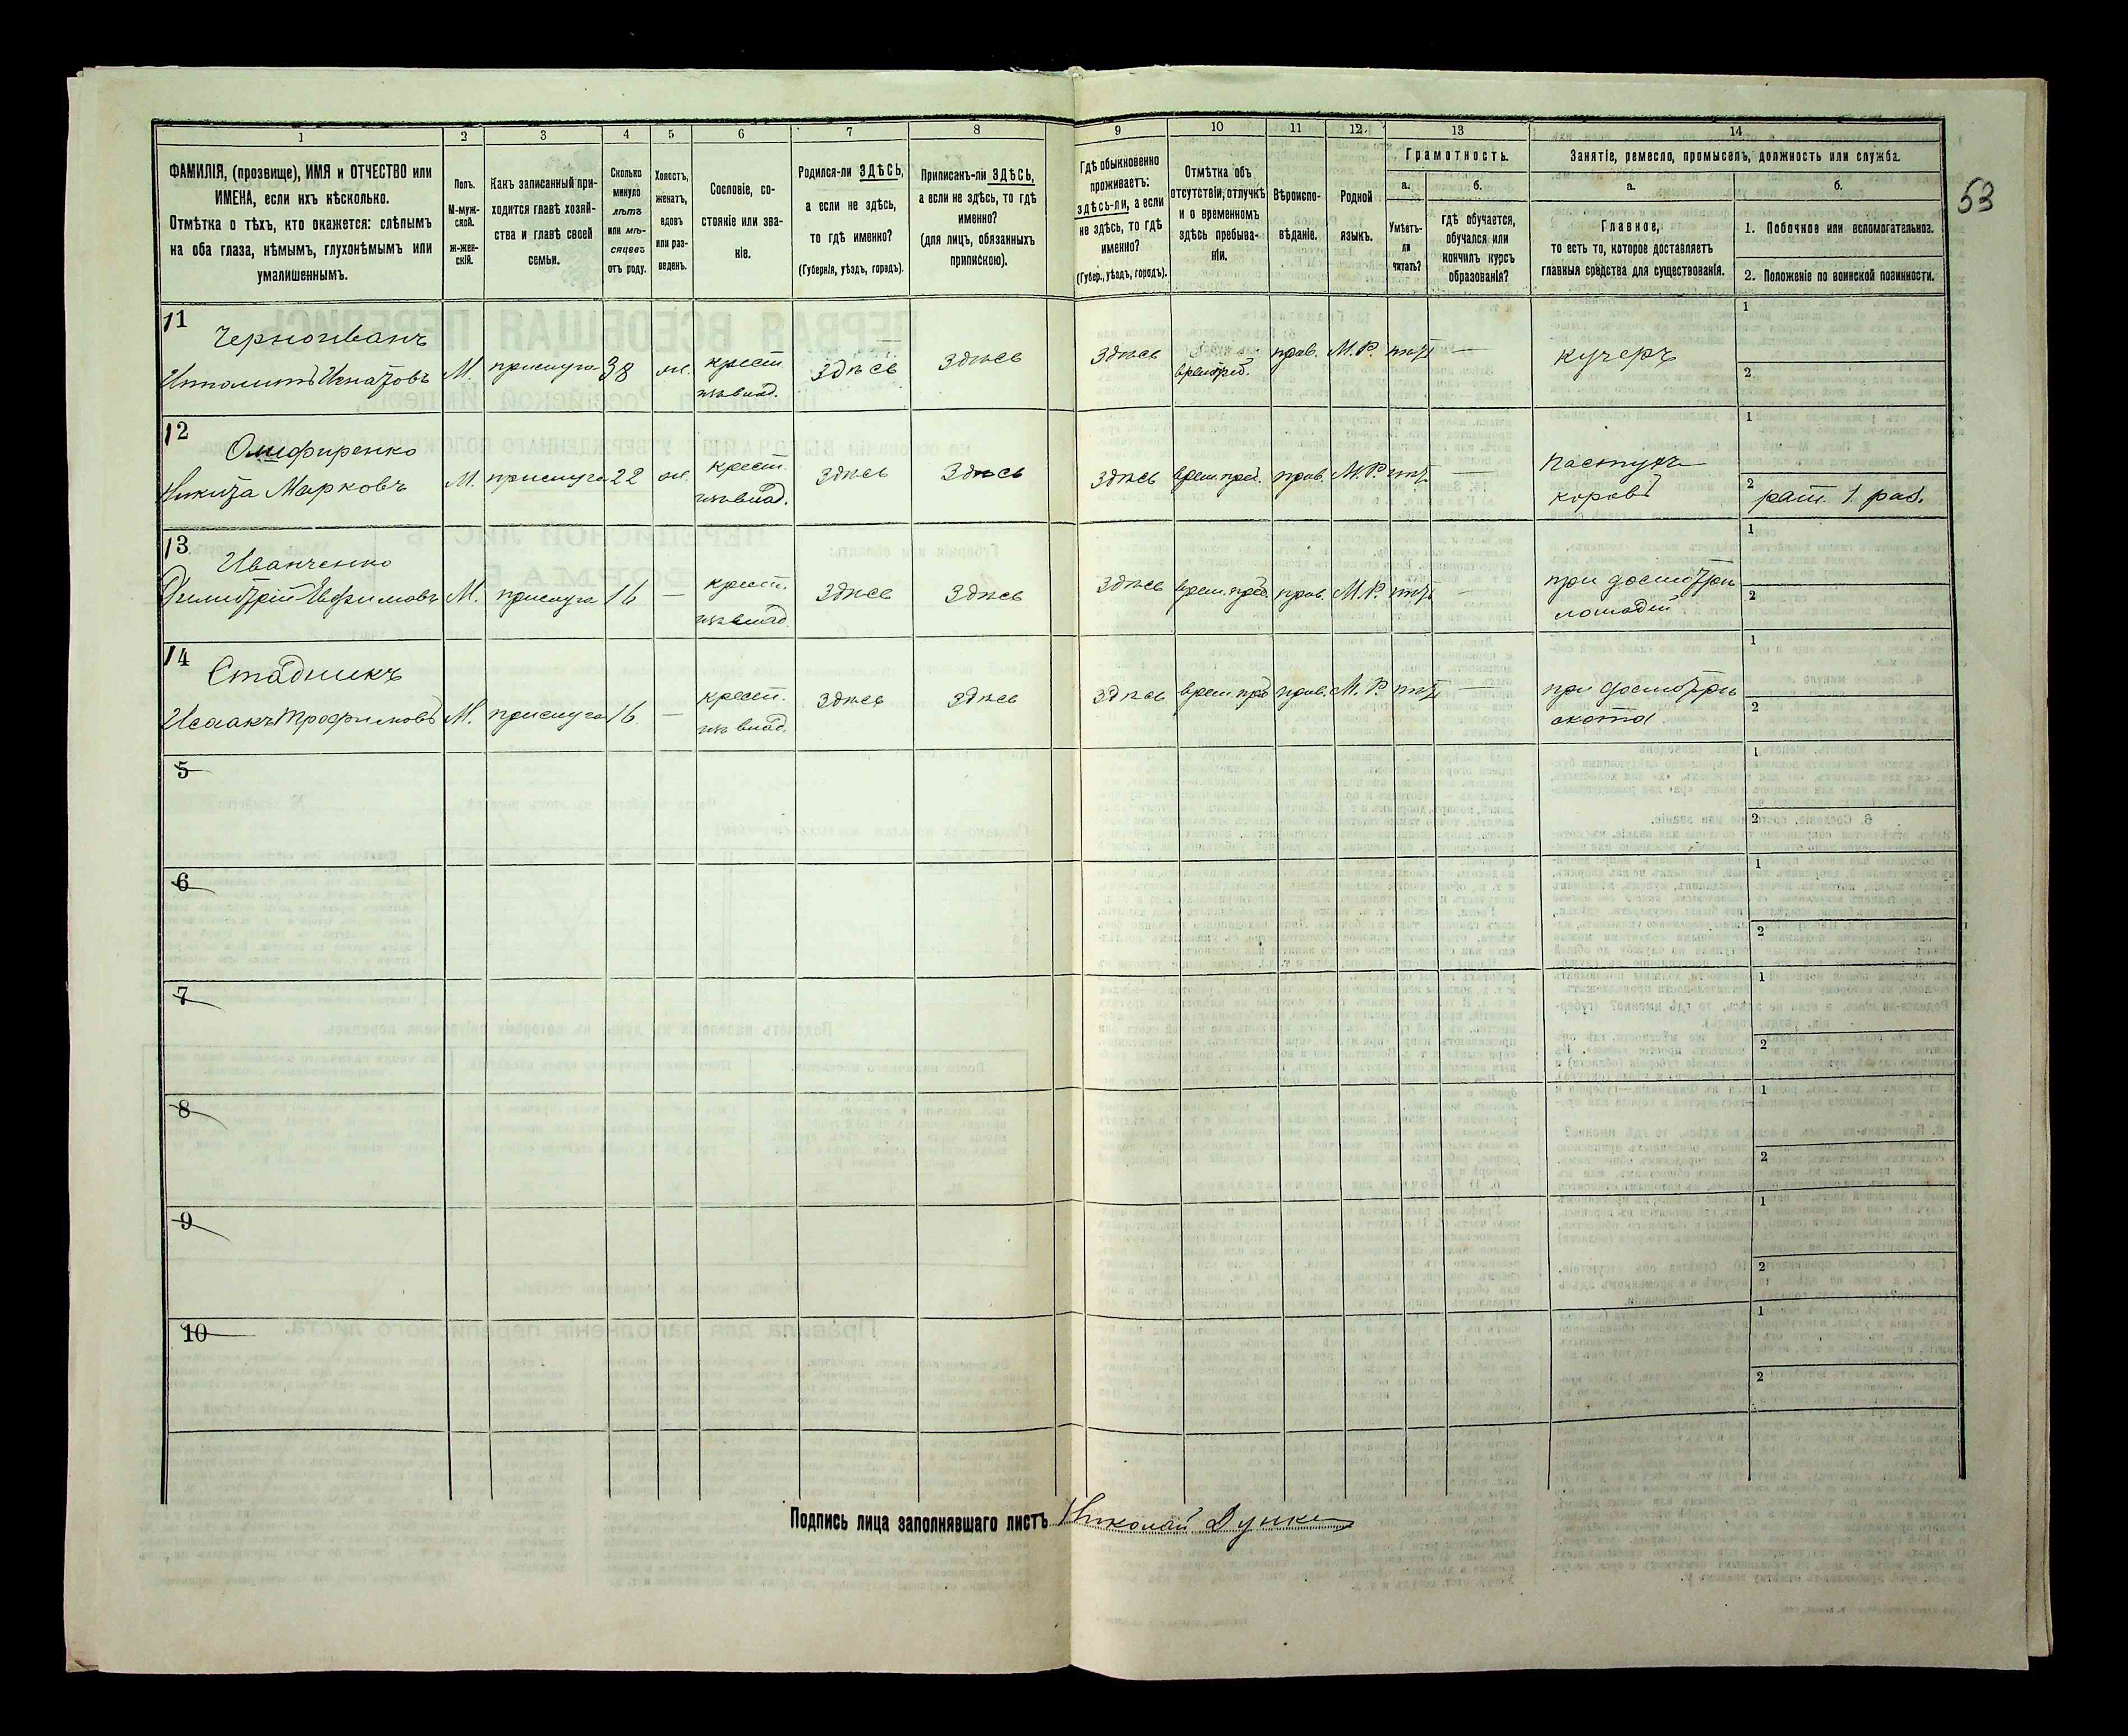 53
1 2 3 4 5 6 7 8 9 10 11 12. 13 14
ФАМИЛІЯ, (прозвище), ИМЯ и ОТЧЕСТВО или
ИМЕНА, если ихъ нѣсколько.
Отмѣтка о тѣхъ, кто окажется: слѣпымъ
на оба глаза, нѣмымъ, глухонѣмымъ или
умалишеннымъ.
Полъ.
М-муж-
ской.
ж-жен-
скій.
Какъ записанный при-
ходится главѣ хозяй-
ства и главѣ своей
семьи.
Сколько
минуло
лѣтъ
или мѣ-
сяцевъ
отъ роду.
Холостъ,
женатъ,
вдовъ
или раз-
веденъ.
Сословіе, со-
стояніе или зва-
ніе.
Родился-ли ЗДѢСЬ,
а если не здѣсь,
то гдѣ именно?
(Губернія, уѣздъ, городъ).
Приписанъ-ли ЗДѢСЬ,
а если не здѣсь, то гдѣ
именно?
(для лицъ, обязанныхъ
припискою).
Гдѣ обыкновенно
проживаетъ:
здѣсь-ли, а если
не здѣсь, то гдѣ
именно?
(Губер., уѣздъ, городъ).
Отмѣтка объ
отсутствіи, отлучкѣ
и о временномъ
здѣсь пребыва-
ніи.
Вѣроиспо-
вѣданіе.
Родной
языкъ.
Грамотность.
а.
Умѣетъ-
ли
читать?
б.
гдѣ обучается,
обучался или
кончилъ курсъ
образованія?
Занятіе, ремесло, промыселъ, должность или служба.
а.
Главное,
то есть то, которое доставляетъ
главныя средства для существованія.
б.
1. Побочное или вспомогательное.
2. Положеніе по воинской повинности.
11 Черноиванъ
Ипполитъ Игнатовъ М. прислуга 38 ж. крест. здѣсь здѣсь здѣсь врем. преб. прав. М.Р. нѣт — кучеръ 1
из влад. 2
12 Омифиренко
Никита Марковъ М. прислуга 22 ж. крест. здѣсь здѣсь здѣсь врем. преб. прав. М.Р. нѣт — пастухъ 1
из влад. коровъ 2 рат. 1 раз.
13 Иванченко
Димитрій Ефимовъ М. прислуга 16 — крест. здѣсь здѣсь здѣсь врем. преб. прав. М.Р. нѣт — при досмотрѣ 1
из влад. лошадей 2
14 Стадникъ
Исаакъ Трофимовъ М. прислуга 16 — крест. здѣсь здѣсь здѣсь врем. преб. прав. М.Р. нѣт — при досмотрѣ 1
из влад. скота 2
5 1
2
6 1
2
7 1
2
8 1
2
9 1
2
10 1
2
Подпись лица заполнявшаго листъ Николай